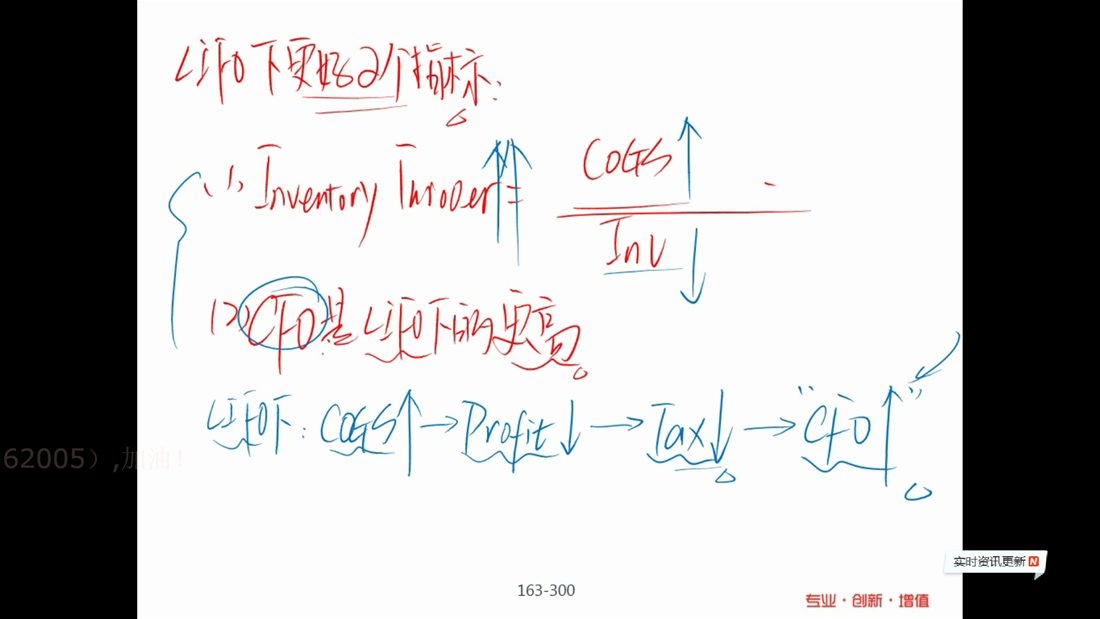 LIFO下更好2个指标:
(1) Inventory Turnover↑↑ = COGS↑ / Inv↓
(2) CFO是LIFO下的更高。
LIFO下: COGS↑→Profit↓→Tax↓→"CFO↑"
62005）,加油!
实时资讯更新 N
163-300
专业·创新·增值